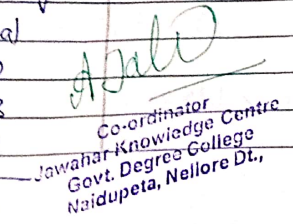 al
Co-ordinator
Jawahar Knowledge Centre
Govt. Degree College
Naidupeta, Nellore Dt.,